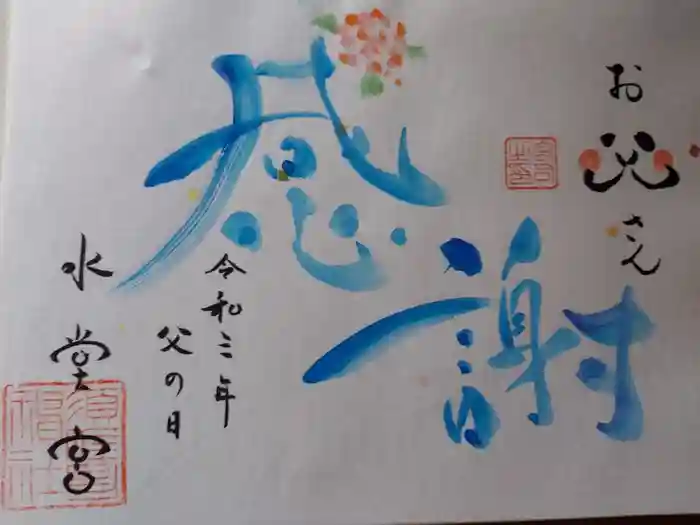 お父さん
感謝
令和三年
父の日
水堂宮